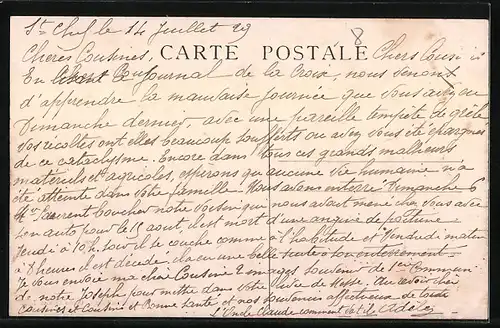 St Chef le 14 Juillet 29
8
CARTE POSTALE
Cheres Cousines, Chers Cousi
En lisant Journal de la Croix, nous venons
d'apprendre la mauvaise journée que vous avez eu
Dimanche dernier, avec une pareille tempête de grêle
vos recoltes ont elles beaucoup soufferts ou avez vous été épargnés
de ce cataclysme. Encore dans tous ces grands malheurs
matériels et agricoles, espérons qu'aucune vie humaine n'a
été atteinte dans votre famille. Nous avons enterré Dimanche
Mr boucher notre voisin qui nous avait mené chez vous avec
son auto pour le 15 aout, il est mort d'une angine de poitrine
Jeudi à 10 h. soir il se couche comme à l'habitude et Vendredi matin
à heures il est décédé, il a eu une belle à son enterrement
Je vous envoie ma chère Cousine 2 images souvenir de 1ère Communi
de notre Joseph pour mettre dans votre livre de Messe. Au revoir cher
cousines et Cousins et Bonne Santé et nos souvenirs affectueux de tous
L'Oncle Claude comment va t-il. Adèle